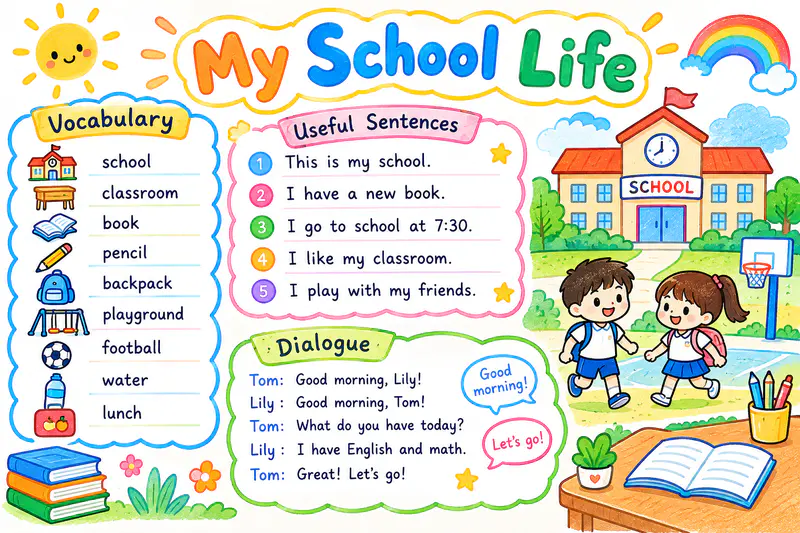 My School Life
Vocabulary
school
classroom
book
pencil
backpack
playground
football
water
lunch
Useful Sentences
1 This is my school.
2 I have a new book.
3 I go to school at 7:30.
4 I like my classroom.
5 I play with my friends.
SCHOOL
Dialogue
Tom: Good morning, Lily!
Lily : Good morning, Tom!
Tom: What do you have today?
Lily : I have English and math.
Tom: Great! Let's go!
Good
morning!
Let's go!